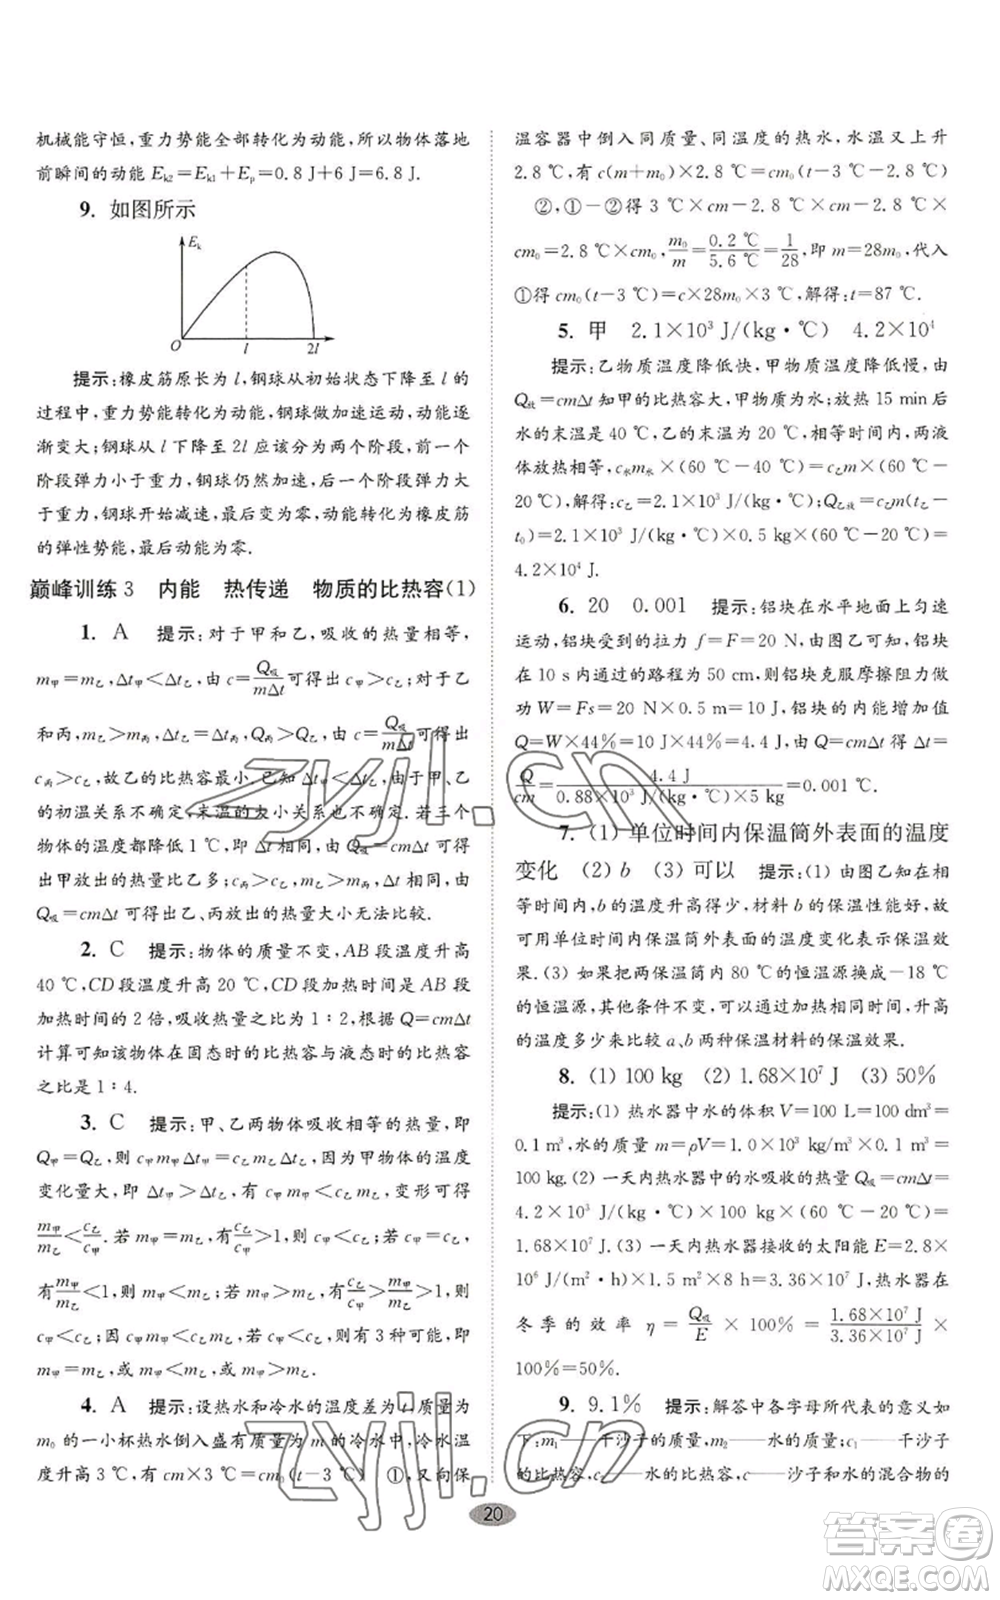 机械能守恒,重力势能全部转化为动能,所以物体落地
前瞬间的动能 Eₖ₂=Eₖ₁+Eₚ=0.8 J+6 J=6.8 J.
9. 如图所示
Eₖ
O l 2l
提示:橡皮筋原长为 l,钢球从初始状态下降至 l 的
过程中,重力势能转化为动能,钢球做加速运动,动能逐
渐变大;钢球从 l 下降至 2l 应该分为两个阶段,前一个
阶段弹力小于重力,钢球仍然加速,最后一个阶段弹力大
于重力,钢球开始减速,最后变为零,动能转化为橡皮筋
的弹性势能,最后动能为零.
巅峰训练 3 内能 热传递 物质的比热容(1)
1. A 提示:对于甲和乙,吸收的热量相等,
m甲=m乙,Δt甲<Δt乙,由 c=Q吸/mΔt 可得出 c甲>c乙;对于乙
和丙,m乙>m丙,Δt乙=Δt丙,Q乙>Q丙,由 c=Q吸/mΔt 可得出
c丙>c乙,故乙的比热容最小.已知 Δt甲<Δt乙,由于甲、乙
的初温关系不确定,末温的大小关系也不确定.若三个
物体的末温相同,由于甲和乙吸收的热量相同,可得
出甲放出的热量比乙多;c丙>c乙,Δt 相同,由
Q吸=cmΔt 可得出乙、丙放出的热量大小无法比较.
2. C 提示:物体的质量不变,AB 段温度升高
40 ℃,CD 段温度升高 20 ℃,CD 段加热时间是 AB 段
加热时间的 2 倍,吸收热量之比为 1∶2,根据 Q=cmΔt
计算可知该物体在固态时的比热容与液态时的比热容
之比是 1∶4.
3. C 提示:甲、乙两物体吸收相等的热量,即
Q甲=Q乙,则 c甲m甲Δt甲=c乙m乙Δt乙,因为甲物体的温度
变化量大,即 Δt甲>Δt乙,有 c甲m甲<c乙m乙,变形可得
m甲/m乙<c乙/c甲.若 c甲=c乙,则 c乙/c甲=1,有 m甲<m乙;若 c甲>c乙,
有 m甲/m乙<1,即 m甲<m乙;若 m甲=m乙,有 c乙/c甲>1,即
c甲<c乙;因 c甲m甲<c乙m乙,若 c甲<c乙,则有 3 种可能,即
m甲=m乙,或 m甲<m乙,或 m甲>m乙.
4. A 提示:设热水和冷水的温度差为 t,质量为
m₀ 的一小杯热水倒入盛有质量为 m 的冷水中,冷水温
度升高 3 ℃,有 cm×3 ℃=cm₀(t-3 ℃) ①,又向保
温容器中倒入同质量、同温度的热水,水温又上升
2.8 ℃,有 c(m+m₀)×2.8 ℃=cm₀(t-3 ℃-2.8 ℃)
②,①-②得 3 ℃×cm-2.8 ℃×cm-2.8 ℃×
cm₀=2.8 ℃×cm₀,m₀/m=0.2 ℃/5.6 ℃=1/28,即 m=28m₀,代入
①得 cm₀(t-3 ℃)=c×28m₀×3 ℃,解得:t=87 ℃.
5. 甲 2.1×10³ J/(kg·℃) 4.2×10⁴
提示:乙物质温度降低快,甲物质温度降低慢,由
Q放=cmΔt 知甲的比热容大,甲物质为水;放热 15 min后
水的末温是 40 ℃,乙的末温为 20 ℃,相等时间内,两液
体放热相等,c水m水×(60 ℃-40 ℃)=c乙m×(60 ℃-
20 ℃),解得:c乙=2.1×10³ J/(kg·℃);Q乙放=c乙m(t乙-
t₀)=2.1×10³ J/(kg·℃)×0.5 kg×(60 ℃-20 ℃)=
4.2×10⁴ J.
6. 20 0.001 提示:铝块在水平地面上匀速
运动,铝块受到的拉力 f=F=20 N,由图乙可知,铝块
在 10 s 内通过的路程为 50 cm,则铝块克服摩擦阻力做
功 W=Fs=20 N×0.5 m=10 J,铝块的内能增加值
Q=W×44%=10 J×44%=4.4 J,由 Q=cmΔt 得 Δt=
Q/cm=4.4 J/0.88×10³ J/(kg·℃)×5 kg=0.001 ℃.
7. (1) 单位时间内保温筒外表面的温度
变化 (2) b (3) 可以 提示:(1) 由图乙知在相
等时间内,b 的温度升高得少,材料 b 的保温性能好,故
可用单位时间内保温筒外表面的温度变化表示保温效
果.(3) 如果把两保温筒内 80 ℃的恒温源换成-18 ℃
的恒温源,其他条件不变,可通过加热相同时间,升高
的温度多少来比较 a、b 两种保温材料的保温效果.
8. (1) 100 kg (2) 1.68×10⁷ J (3) 50%
提示:(1) 热水器中水的体积 V=100 L=100 dm³=
0.1 m³,水的质量 m=ρV=1.0×10³ kg/m³×0.1 m³=
100 kg.(2) 一天内热水器中的水吸收的热量 Q吸=cmΔt=
4.2×10³ J/(kg·℃)×100 kg×(60 ℃-20 ℃)=
1.68×10⁷ J.(3) 一天内热水器接收的太阳能 E=2.8×
10⁶ J/(m²·h)×1.5 m²×8 h=3.36×10⁷ J,热水器在
冬季的效率 η=Q吸/E×100%=1.68×10⁷ J/3.36×10⁷ J×
100%=50%.
9. 9.1% 提示:解答中各字母所代表的意义如
下:m₁——干沙子的质量,m₂——水的质量;c₁——干沙子
的比热容,c——水的比热容,c——沙子和水的混合物的
20
zyjl.cn
zyjl.cn
答案圈
MXQE.COM